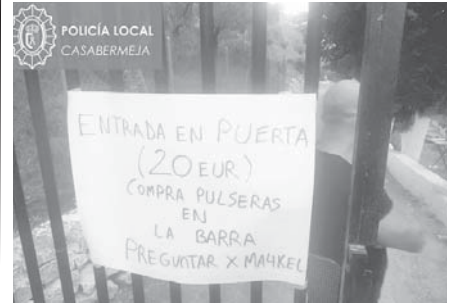 POLICÍA LOCAL
CASABERMEJA
ENTRADA EN PUERTA
(20 EUR)
COMPRA PULSERAS
EN
LA BARRA
PREGUNTAR X MA4KEL